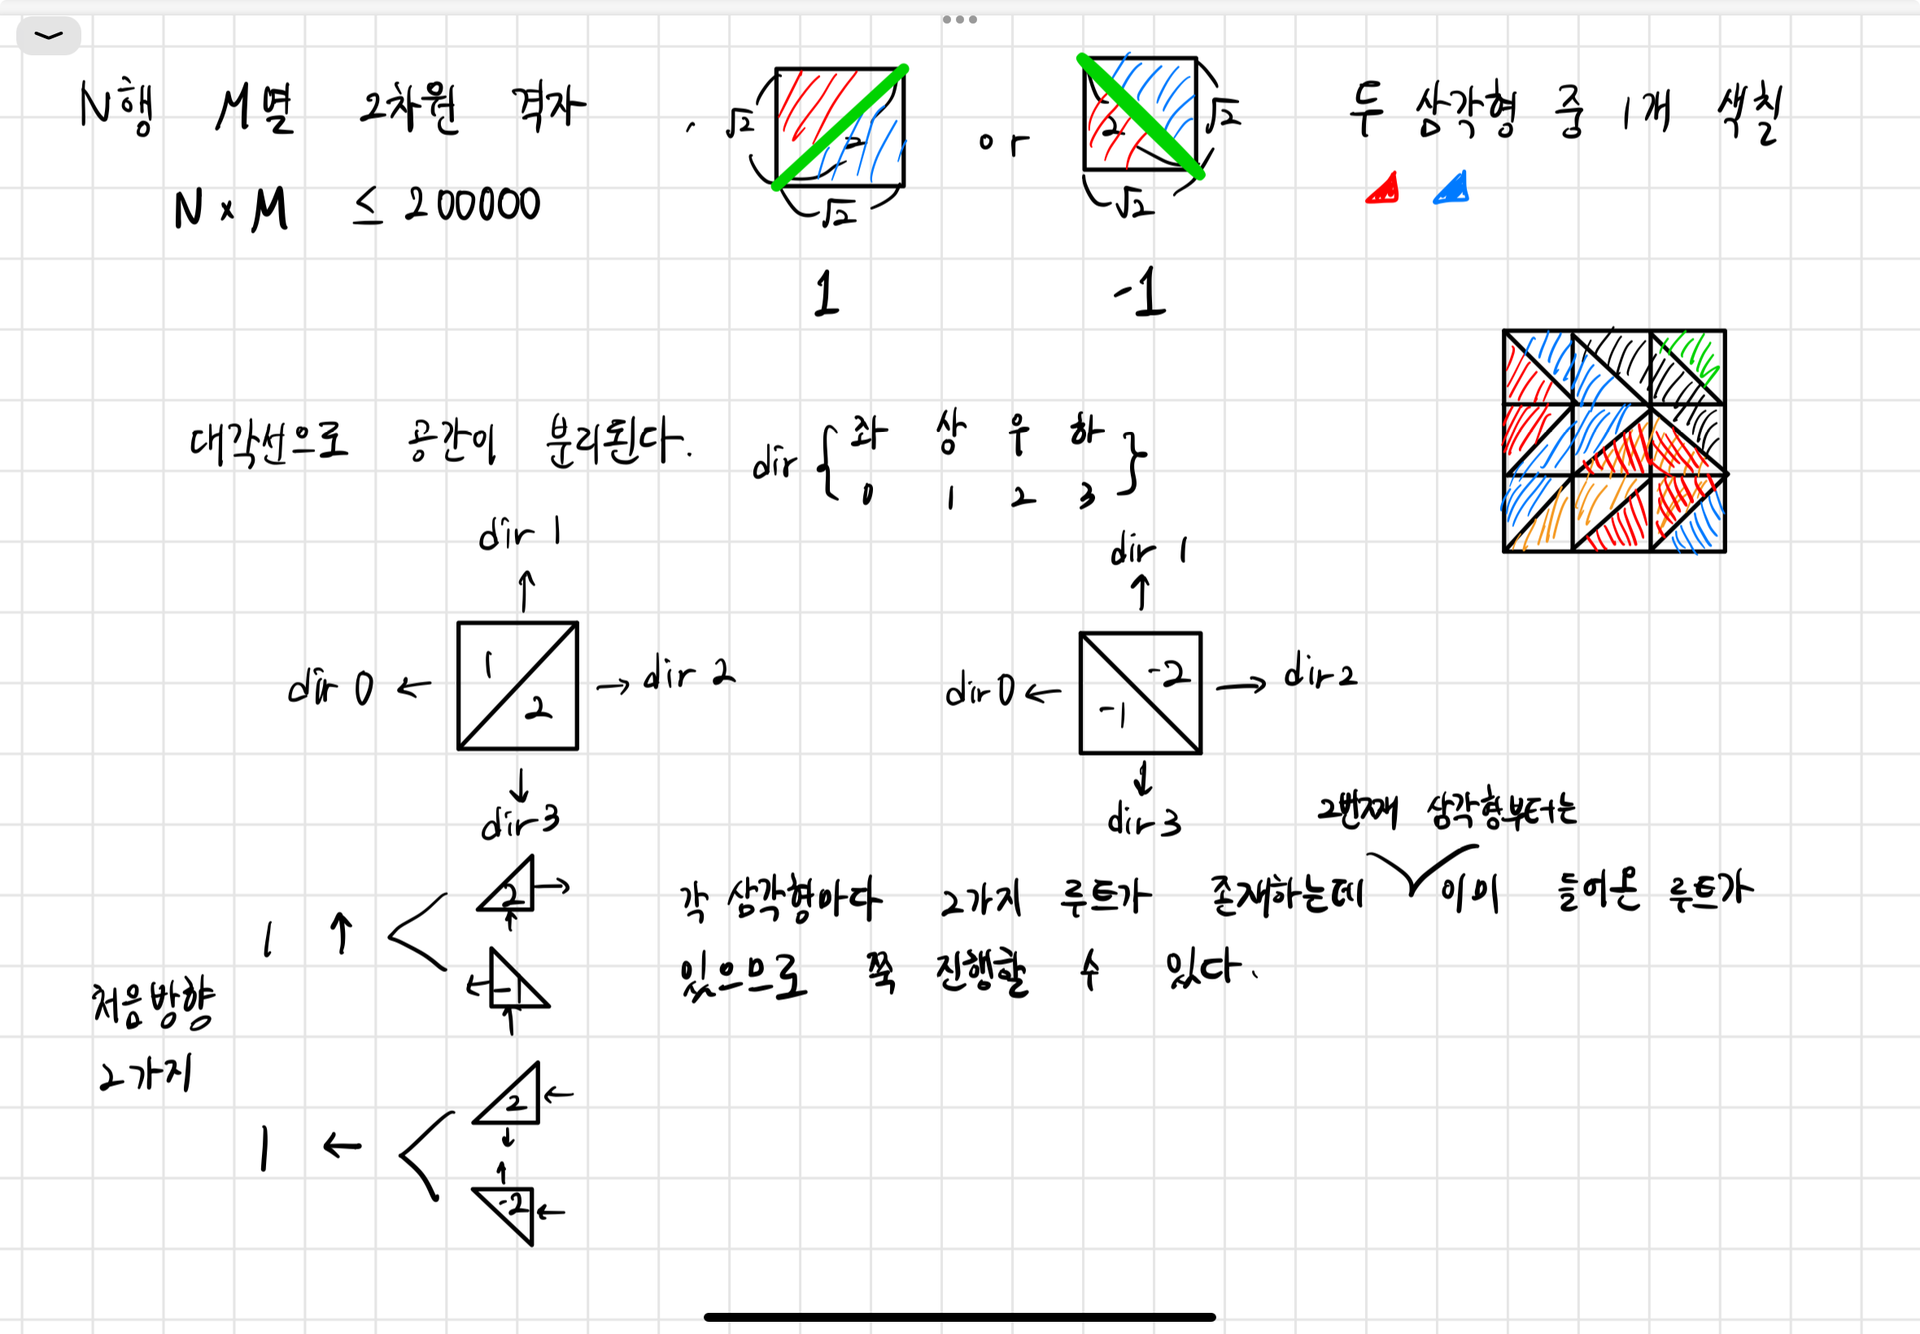 N행 M열 2차원 격자
N x M ≤ 200000
√2 2 √2
1
or
2 √2 √2
-1
두 삼각형 중 1개 색칠
대각선으로 공간이 분리된다.
dir { 좌 상 우 하 }
0 1 2 3
dir 1
dir 0 ← 1 2 → dir 2
dir 3
dir 1
dir 0 ← -1 -2 → dir 2
dir 3
처음방향
2가지
1 ↑
2 →
↑
← -1
↑
1 ←
2 ←
↓
↑
-2 ←
2번째 삼각형부터는
각 삼각형마다 2가지 루트가 존재하는데 이미 들어온 루트가
있으므로 쭉 진행할 수 있다.